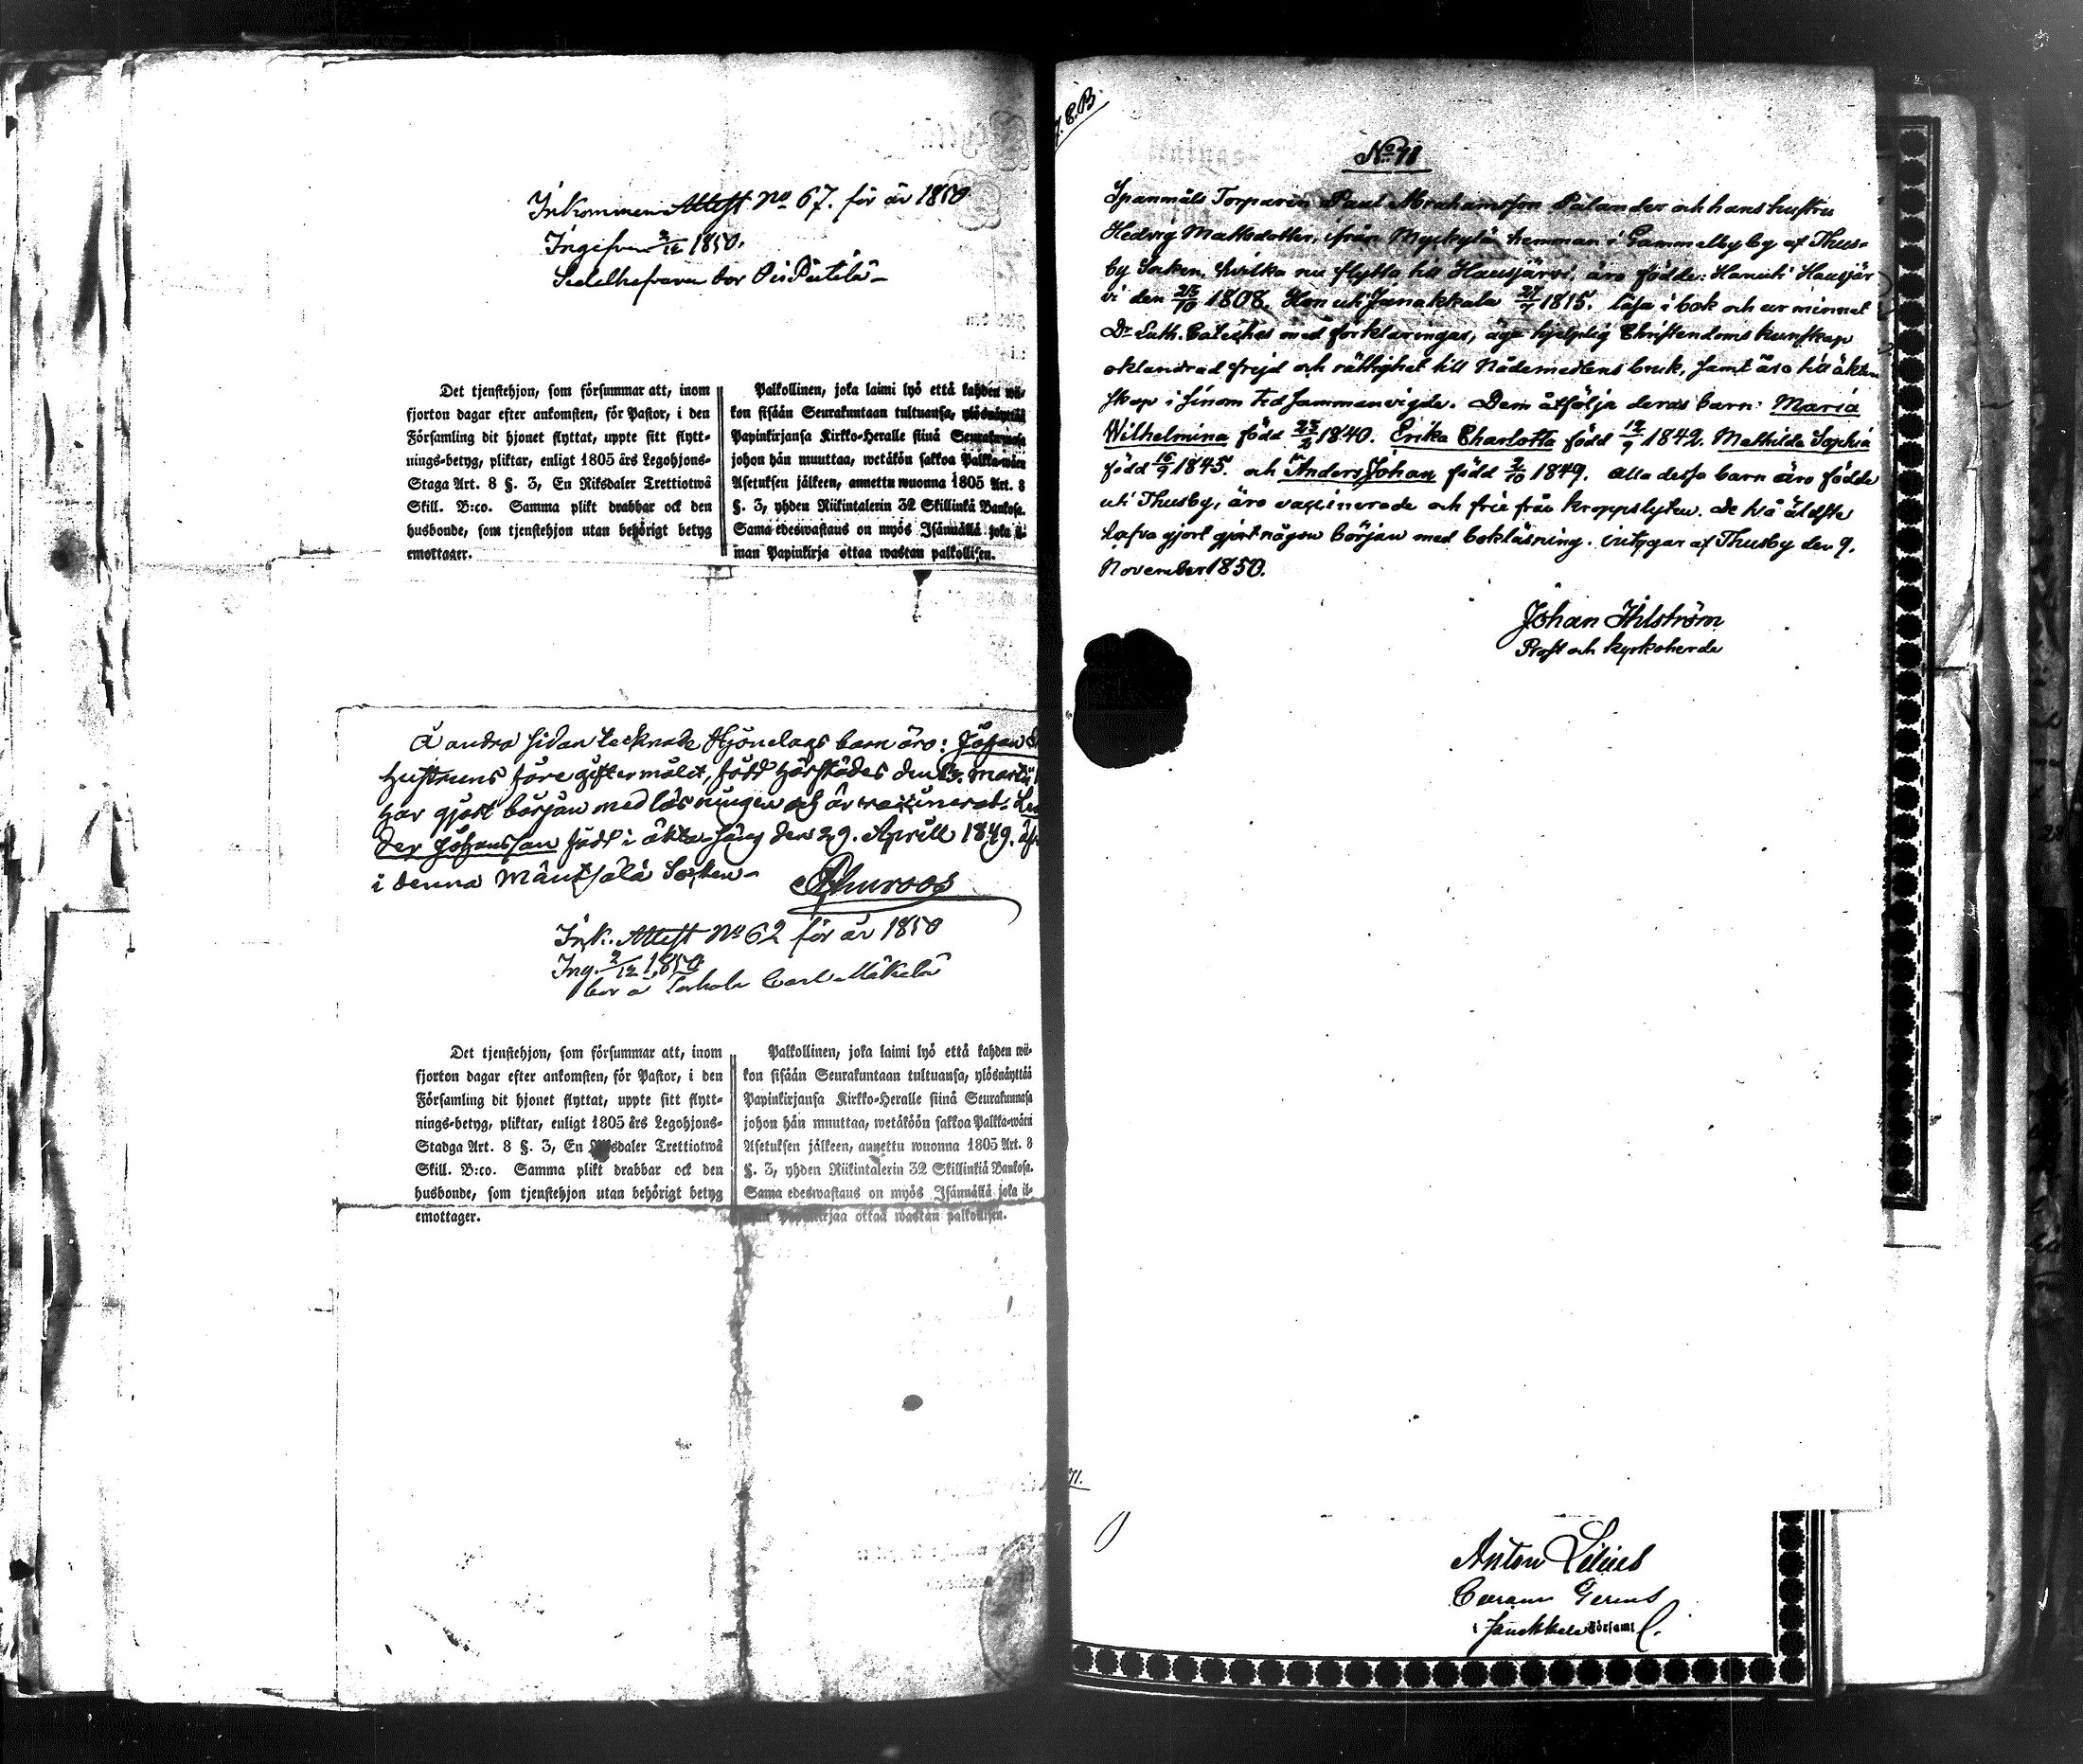 Inkommen Attest No 67. för år 1850
Ingifven 2/12 1850.
Sedelhafvaren bor
Det tjenstehjon, som försummar att, inom
fjorton dagar efter ankomsten, för Pastor, i den
Församling dit hjonet flyttat, uppte sitt flytt-
nings-betyg, pliktar, enligt 1805 års Legohjons-
Staga Art. 8 §. 3, En Riksdaler Trettiotwå
Skill. B:co. Samma plikt drabbar ock den
husbonde, som tjenstehjon utan behörigt betyg
emottager.
Palkollinen, joka laimi lyö että kahden wii-
kon sisään Seurakuntaan tultuansa, ylösnäyttää
Papinkirjansa Kirkko-Heralle siinä Seurakunnasa
johon hän muuttaa, wetäkön sakkoa Palkka-wäen
Asetuksen jälkeen, annettu wuonna 1805 Art. 8
§. 3, yhden Riikintalerin 32 Skillinkiä Bankosa.
Sama edeswastaus on myös Isännällä joka il-
man Papinkirja ottaa wastan palkollisen.
Å andra sidan tecknade Hjonelags barn äro: Johan
hustruns före giftermålet, född härstädes den 13. Martii
har gjort början med läsningen och är vaccinerad.
der Johansson född i äkta säng den 29. Aprill 1849.
i denna Mäntsälä Socken
Ink. Attest No 62 för år 1850
Ing. 2/12 1850
bor å Carl Mäkelä
Det tjenstehjon, som försummar att, inom
fjorton dagar efter ankomsten, för Pastor, i den
Församling dit hjonet flyttat, uppte sitt flytt-
nings-betyg, pliktar, enligt 1805 års Legohjons-
Stadga Art. 8 §. 3, En Riksdaler Trettiotwå
Skill. B:co. Samma plikt drabbar ock den
husbonde, som tjenstehjon utan behörigt betyg
emottager.
Palkollinen, joka laimi lyö että kahden wii-
kon sisään Seurakuntaan tultuansa, ylösnäyttää
Papinkirjansa Kirkko-Heralle siinä Seurakunnasa
johon hän muuttaa, wetäköön sakkoa Palkka-wäen
Asetuksen jälkeen, annettu wuonna 1805 Art. 8
§. 3, yhden Riikintalerin 32 Skillinkiä Bankosa.
Sama edeswastaus on myös Isännällä joka il-
man Papinkirjaa ottaa wastan palkollisen.
No 41
Spanmåls Torparen Paul Abrahamsson Palander och hans hustru
Hedvig Mattsdotter, ifrån Myckylä hemman i Gammelby by af Thus-
by Socken, hvilka nu flytta till Hausjärvi, äro födde: Han uti Hausjär
vi den 25/10 1808. Hon uti Janakkala 27/7 1815. läsa i bok och ur minnet
Dr Luth. Cateches med förklaringar, äga hjelplig Christendoms kunskap
oklandrad frejd och rättighet till Nådemedlens bruk, samt äro till äkten
skap i sinom tid sammanvigde. Dem åtfölja deras barn: Maria
Wilhelmina född 23/2 1840. Erika Charlotta född 12/9 1842. Mathilda Sophia
född 16/7 1845. och Anders Johan född 2/10 1849. Alla dessa barn äro födde
uti Thusby, äro vaccinerade och frie från kroppslyten. De två äldste
hafva gjort gjort någon början med bokläsning. intygar af Thusby den 9.
November 1850.
Johan Ahlström
Prost och kyrkoherde
Anton Lilius
i Janakkala Församl.